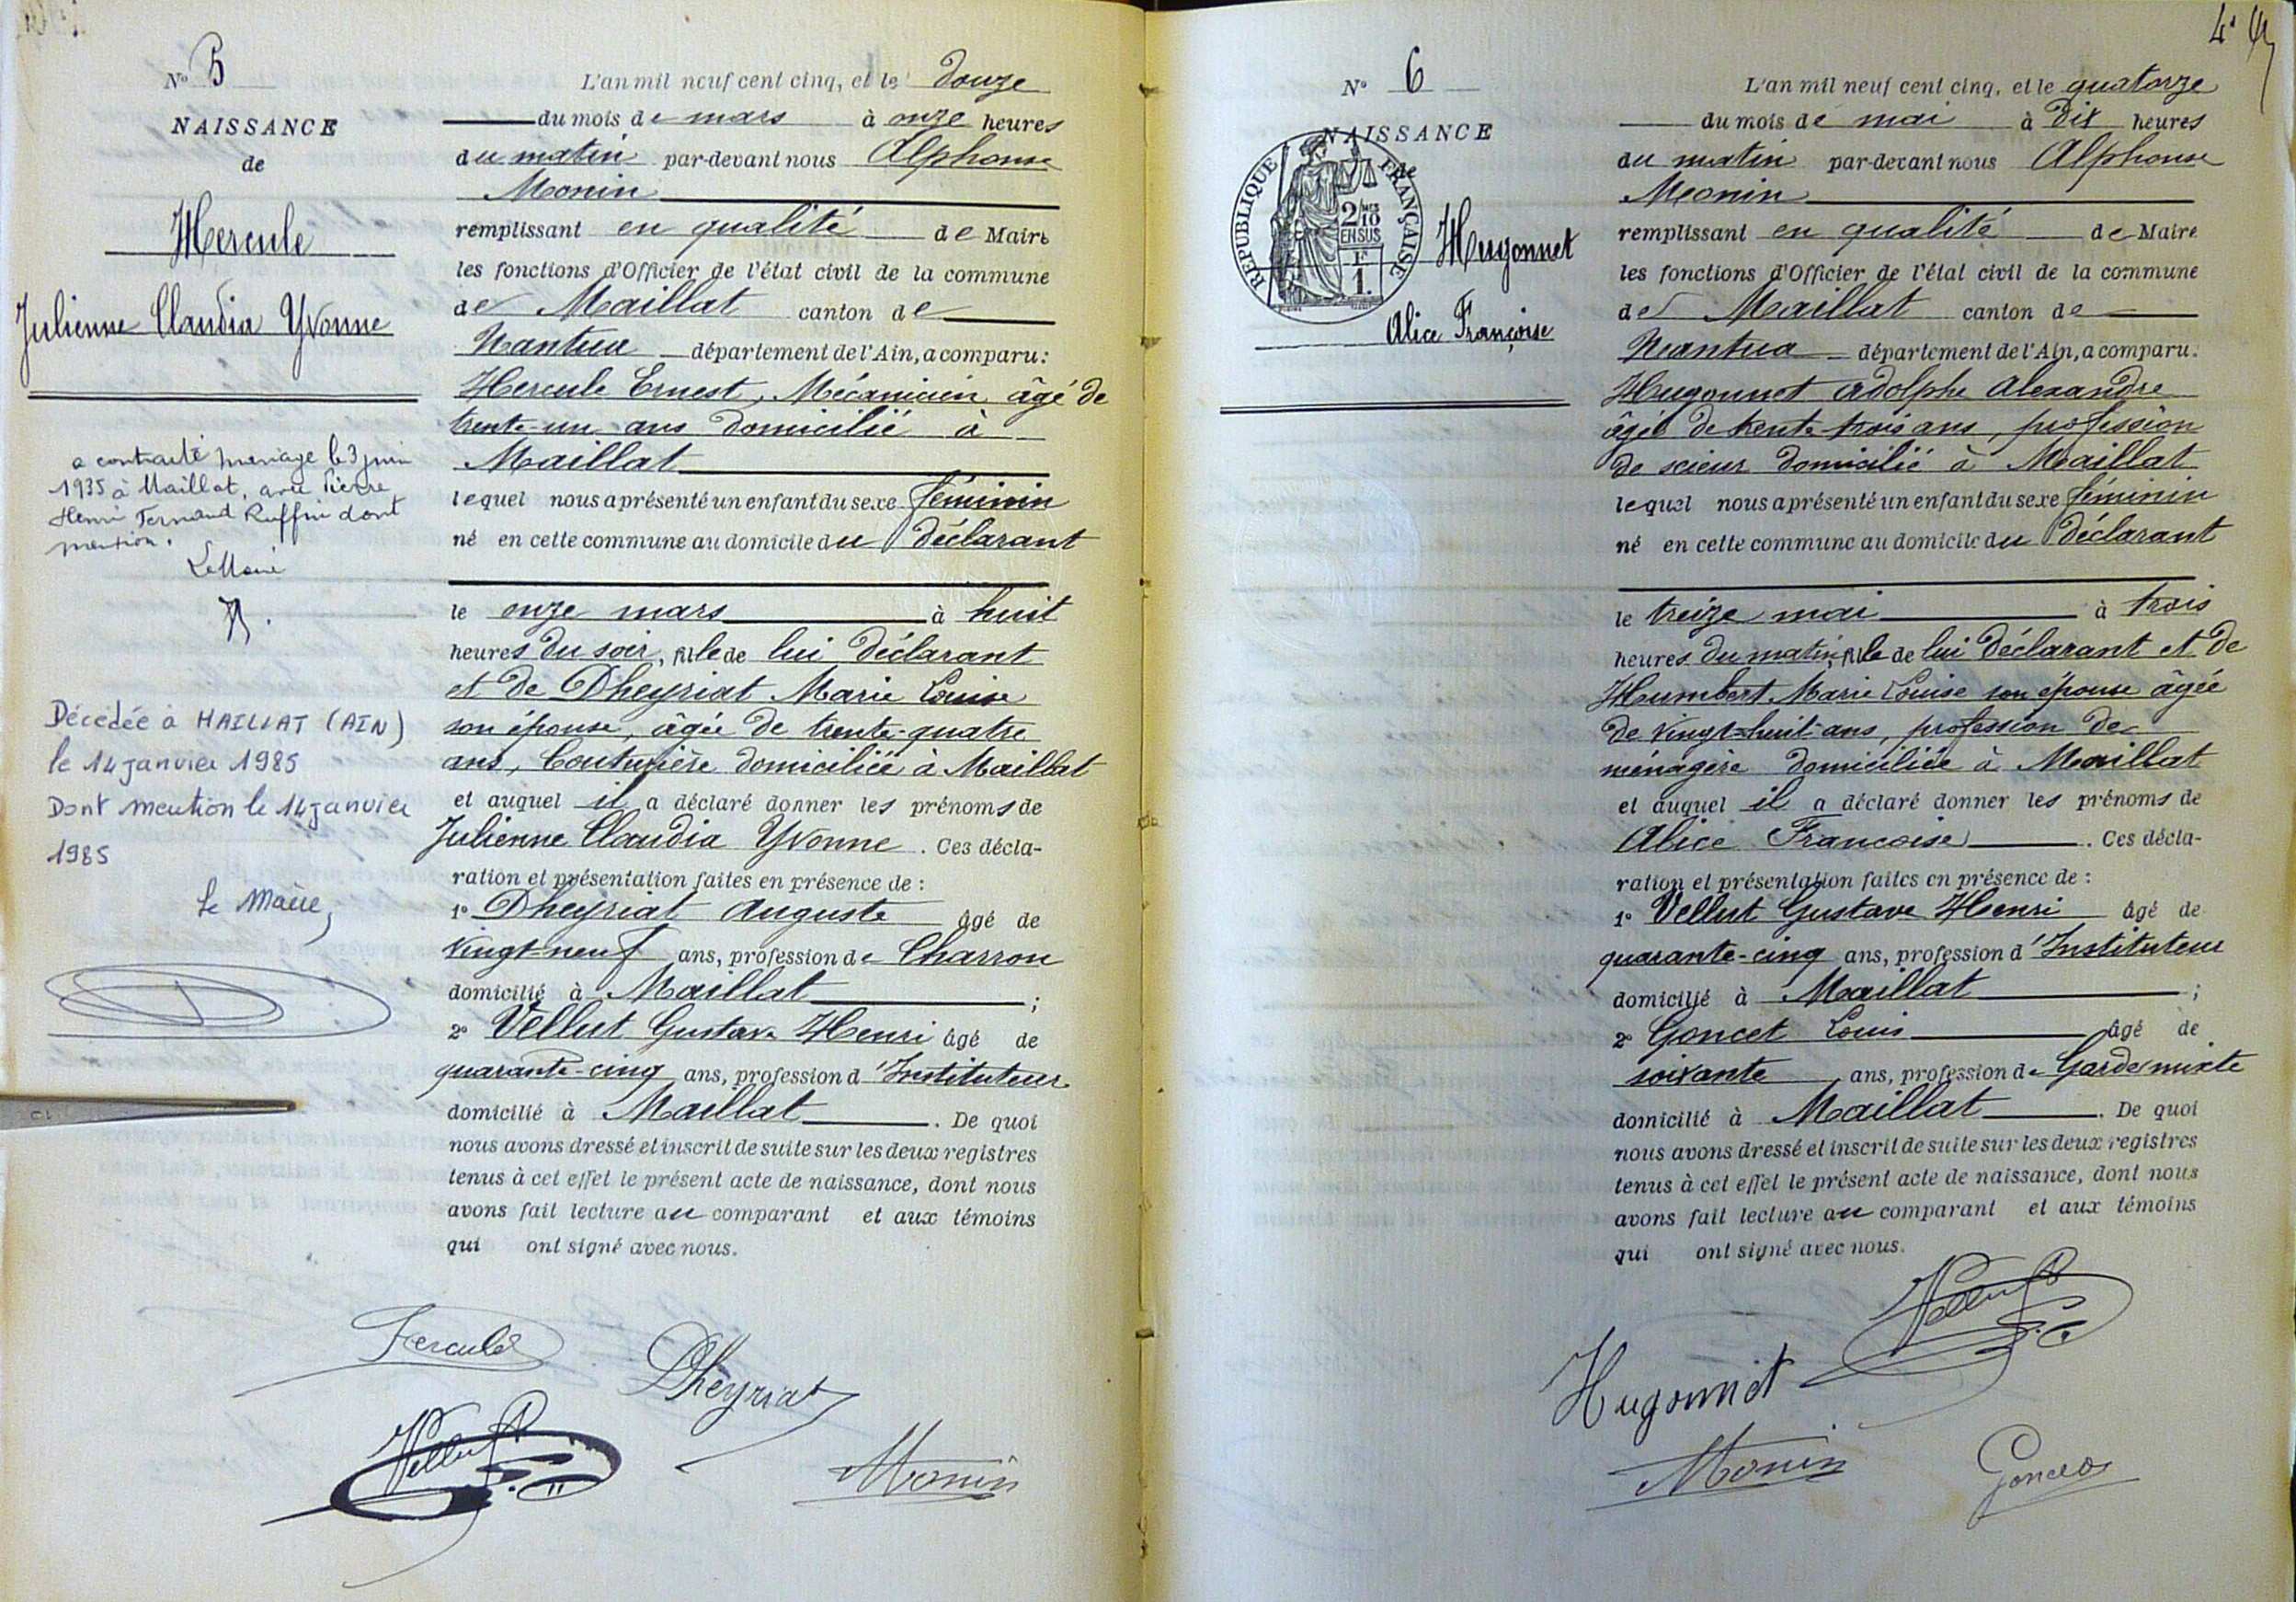 N° 5
NAISSANCE
de
Hercule
Julienne Claudia Yvonne
a contracté mariage le 3 juin
1935 à Maillat, avec Pierre
Henri Fernand Ruffin dont
mention.
Le Maire
Décédée à MAILLAT (AIN)
le 14 janvier 1985
Dont mention le 14 janvier
1985
Le Maire,
L'an mil neuf cent cinq, et le douze
du mois de mars à onze heures
du matin par-devant nous Alphonse
Monin
remplissant en qualité de Maire
les fonctions d'Officier de l'état civil de la commune
de Maillat canton de
Nantua département de l'Ain, a comparu:
Hercule Ernest, Mécanicien âgé de
trente-un ans domicilié à
Maillat
lequel nous a présenté un enfant du sexe féminin
né en cette commune au domicile du déclarant
le onze mars à huit
heures du soir, fille de lui déclarant
et de Dheyriat Marie Louise
son épouse, âgée de trente-quatre
ans, Couturière domiciliée à Maillat
et auquel il a déclaré donner les prénoms de
Julienne Claudia Yvonne. Ces décla-
ration et présentation faites en présence de :
1° Dheyriat Auguste âgé de
vingt-neuf ans, profession de Charron
domicilié à Maillat ;
2° Vellut Gustave Henri âgé de
quarante-cinq ans, profession d'Instituteur
domicilié à Maillat. De quoi
nous avons dressé et inscrit de suite sur les deux registres
tenus à cet effet le présent acte de naissance, dont nous
avons fait lecture au comparant et aux témoins
qui ont signé avec nous.
Hercule
Dheyriat
Vellut
Monin
4
N° 6
NAISSANCE
de
REPUBLIQUE FRANÇAISE
2/10
EN SUS
1 F
Hugonnet
Alice Françoise
L'an mil neuf cent cinq, et le quatorze
du mois de mai à dix heures
du matin par-devant nous Alphonse
Monin
remplissant en qualité de Maire
les fonctions d'Officier de l'état civil de la commune
de Maillat canton de
Nantua département de l'Ain, a comparu:
Hugonnet Adolphe Alexandre
âgé de trente-trois ans, profession
de scieur domicilié à Maillat
lequel nous a présenté un enfant du sexe féminin
né en cette commune au domicile du déclarant
le treize mai à trois
heures du matin, fille de lui déclarant et de
Humbert Marie Louise son épouse âgée
de vingt-huit ans, profession de
ménagère domiciliée à Maillat
et auquel il a déclaré donner les prénoms de
Alice Francoise. Ces décla-
ration et présentation faites en présence de :
1° Vellut Gustave Henri âgé de
quarante-cinq ans, profession d'Instituteur
domicilié à Maillat ;
2° Goncet Louis âgé de
soixante ans, profession de Garde mixte
domicilié à Maillat. De quoi
nous avons dressé et inscrit de suite sur les deux registres
tenus à cet effet le présent acte de naissance, dont nous
avons fait lecture au comparant et aux témoins
qui ont signé avec nous.
Vellut
Hugonnet
Monin
Goncet